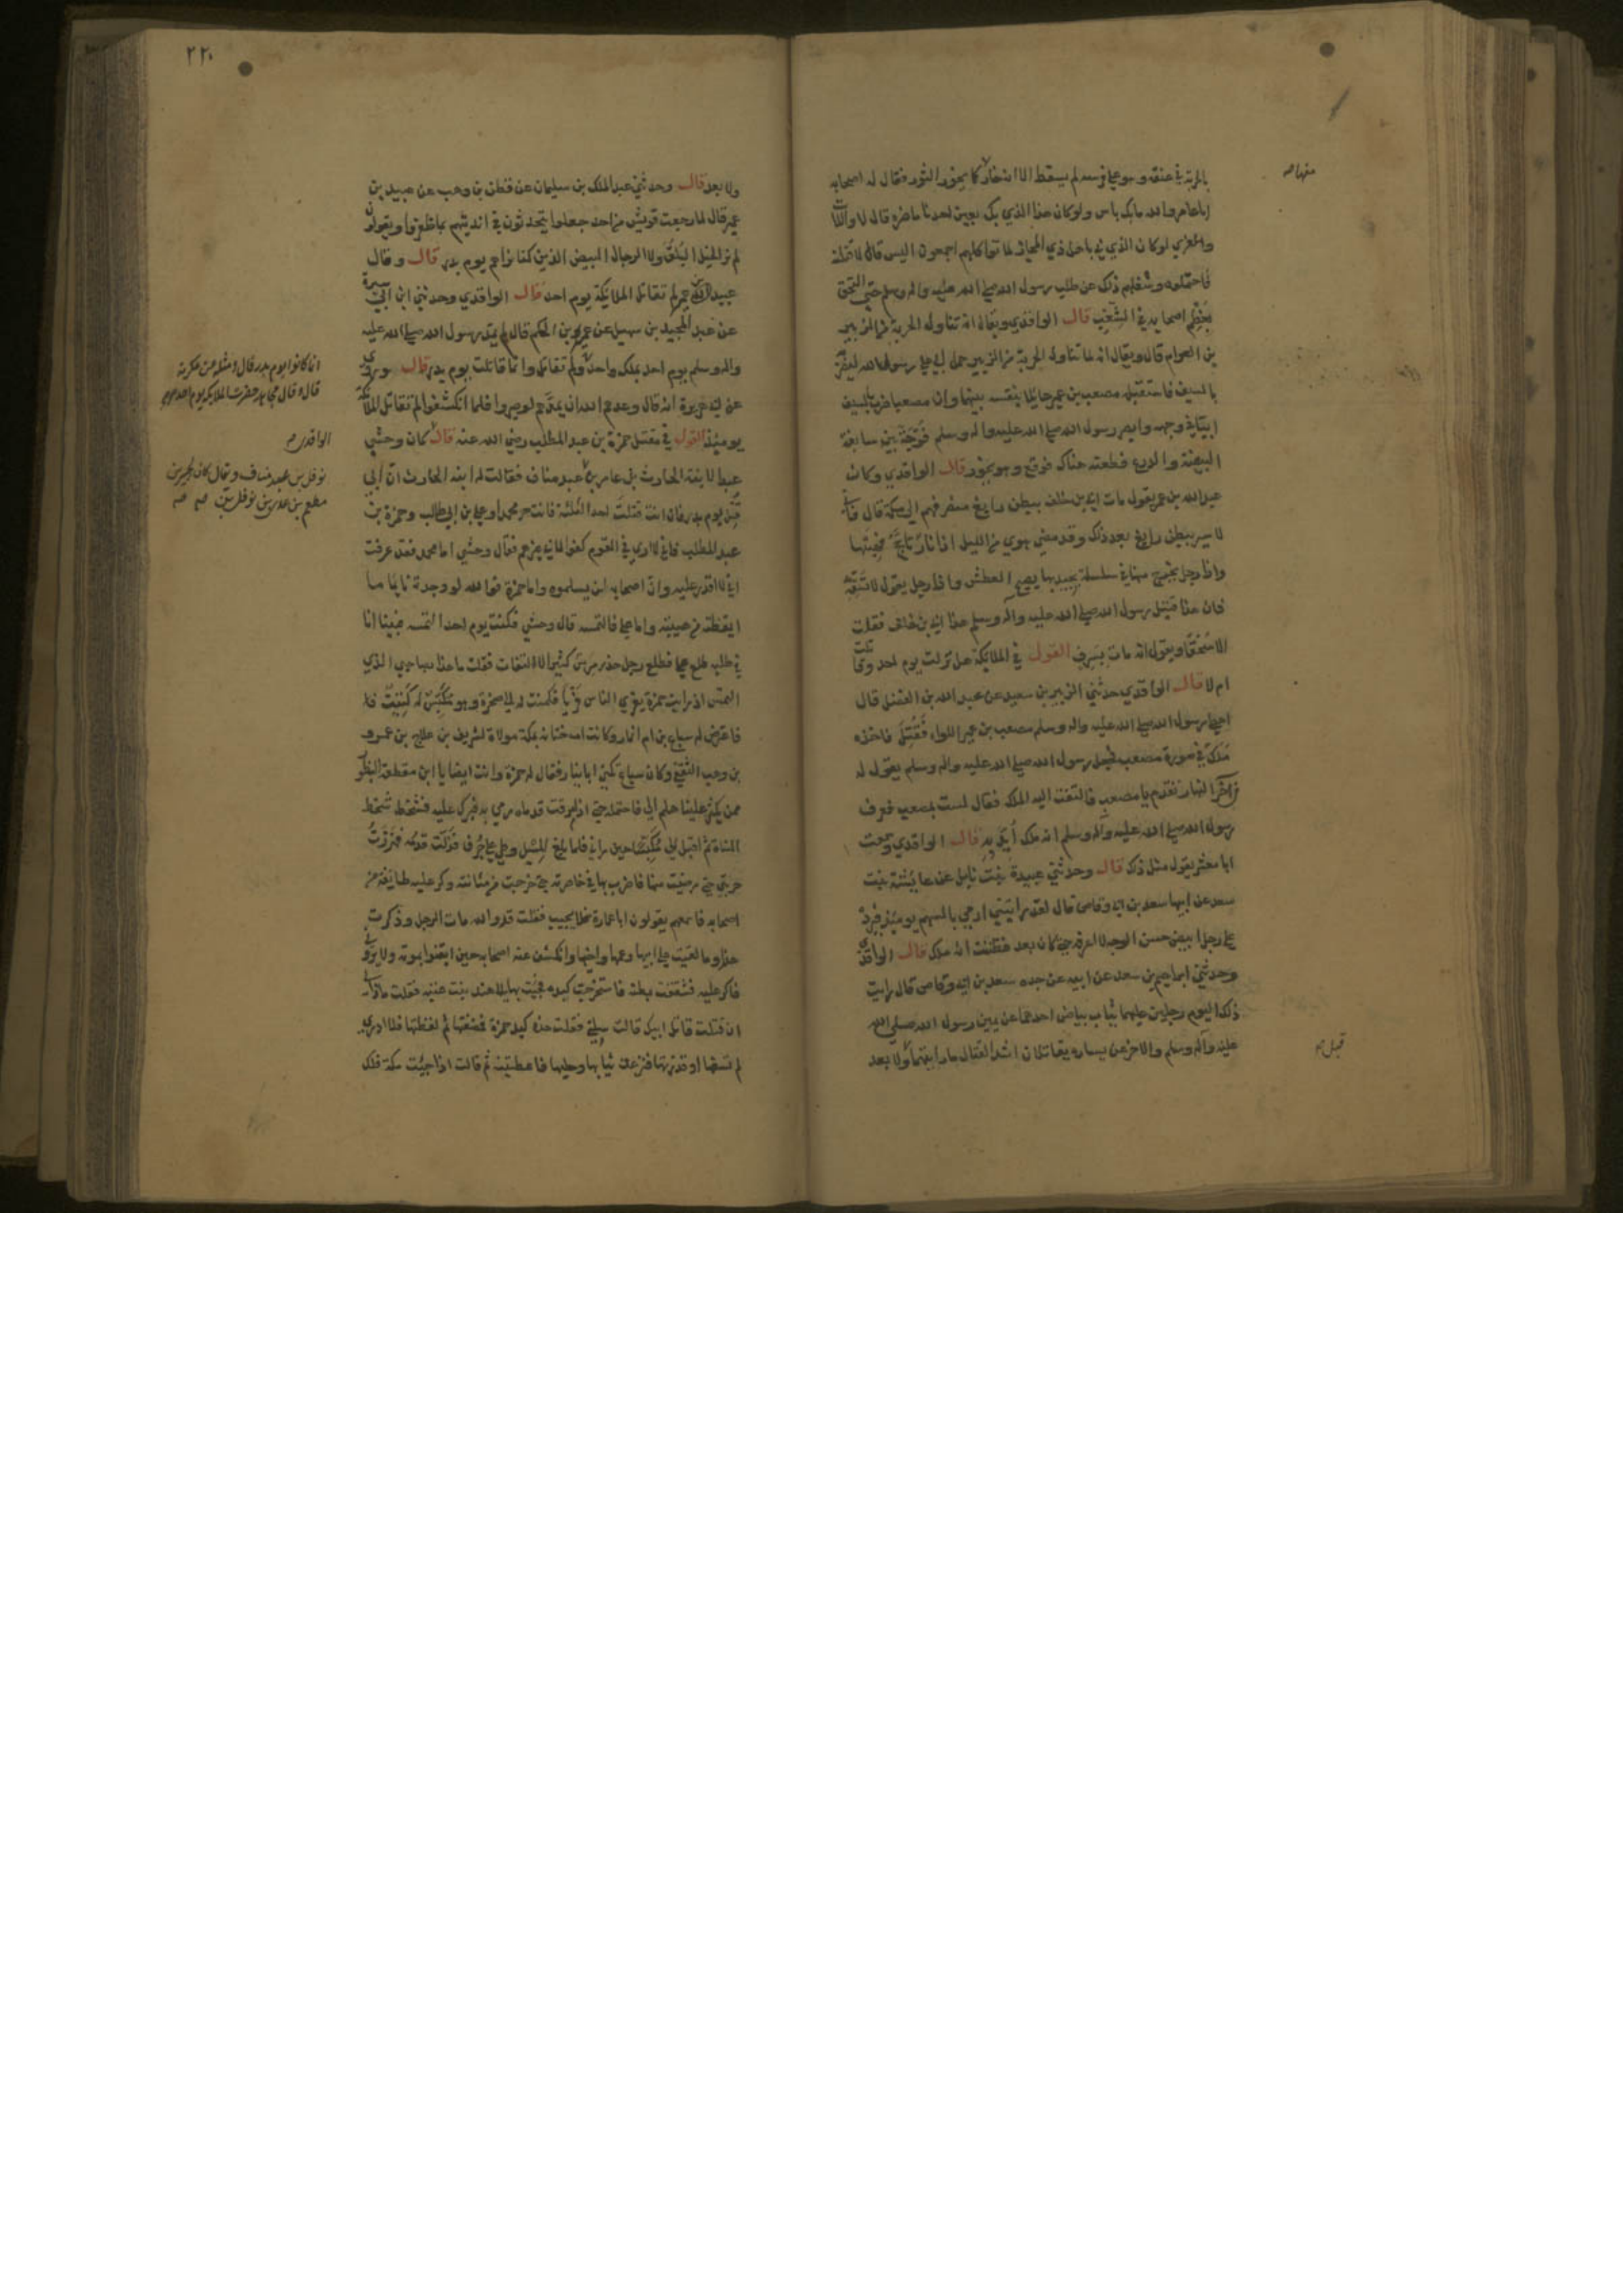 بالحربة في عنقه وهو على فرسه لم يسقط الا انه خار كما يخور الثور فقال له اصحابه
ابا عامر والله ما بك باس ولو كان هذا الذي بك بعين احدنا ما ضره قال لا واللات
والعزي لو كان الذي بي باهل ذي المجاز لماتوا كلهم اجمعون اليس قال لاقتلنه
فاحتملوه وشغلهم ذلك عن طلب رسول الله صلى الله عليه واله وسلم حتى التحق
بعظم اصحابه في الشعب قال الواقدي ويقال انه تناول الحربة من الزبير
بن العوام قال ويقال انه لما تناول الحربة من الزبير حمل ابي على رسول الله ليضربه
بالسيف فاستقبله مصعب بن عمير حائلا بنفسه بينهما وان مصعبا ضرب بالسيف
ابيا في وجهه وابصر رسول الله صلى الله عليه واله وسلم فرجة بين سابغة
البيضة والدرع فطعنه هناك فوقع وهو يخور قال الواقدي وكان
عبد الله بن عمر يقول مات ابي بن خلف ببطن رابغ منصرفهم الى مكة قال فاني
لاسير ببطن رابغ بعد ذلك وقد مضى هوي من الليل اذا نار تاجج فهبتها
واذا رجل يخرج منها في سلسلة يجتذبها يصيح العطش واذا رجل يقول لا تسقه
فان هذا قتيل رسول الله صلى الله عليه واله وسلم هذا ابي بن خلف فقلت
الا سحقا ويقول انه مات بسرف القول في الملائكة هل نزلت يوم احد وقاتلت
ام لا قال الواقدي حدثني الزبير بن سعيد عن عبد الله بن الفضل قال
اعطى رسول الله صلى الله عليه واله وسلم مصعب بن عمير اللواء فقتل فاخذه
ملك في صورة مصعب فجعل رسول الله صلى الله عليه واله وسلم يقول له
في آخر النهار تقدم يا مصعب فالتفت اليه الملك فقال لست بمصعب فعرف
رسول الله صلى الله عليه واله وسلم انه ملك أيد به قال الواقدي سمعت
ابا معشر يقول مثل ذلك قال وحدثتني عبيدة بنت نابل عن عايشة بنت
سعد عن ابيها سعد بن ابي وقاص قال لقد رايتني ارمي بالسهم يومئذ فيرده
علي رجل ابيض حسن الوجه لا اعرفه حتى كان بعد فظننت انه ملك قال الواقدي
وحدثني ابراهيم بن سعد عن ابيه عن جده سعد بن ابي وقاص قال رايت
ذلك اليوم رجلين عليهما ثياب بياض احدهما عن يمين رسول الله صلى الله
عليه واله وسلم والاخر عن يساره يقاتلان اشد القتال ما رايتهما ولا بعد
منها صح
قبل
٢٢٠
ولا بعد قال وحدثني عبد الملك بن سليمان عن قطن بن وهب عن عبيد بن
عمير قال لما رجعت قريش من احد جعلوا يتحدثون في انديتهم بما ظفروا ويقولون
لم نر الخيل البلق ولا الرجال البيض الذين كنا نراهم يوم بدر قال وقال
عبيد بن عمير لم تقاتل الملائكة يوم احد قال الواقدي وحدثني ابن ابي سبرة
عن عبد المجيد بن سهيل عن عمر بن الحكم قال لم يمد رسول الله صلى الله عليه
واله وسلم يوم احد بملك واحد ولم تقاتل وانما قاتلت يوم بدر قال وروي
عن ابي هريرة انه قال وعدهم الله ان يمدهم لو صبروا فلما انكشفوا لم تقاتل الملائكة
يومئذ القول في مقتل حمزة بن عبد المطلب رضي الله عنه قال كان وحشي
عبدا لابنة الحارث بن عامر بن عبد مناف فقالت له ابنة الحارث ان أبي
قتل يوم بدر فان انت قتلت احد الثلثة فانت حر محمدا وعلي بن ابي طالب وحمزة بن
عبد المطلب فاني لا ارى في القوم كفوا لابي غيرهم فقال وحشي اما محمد فقد عرفت
اني لا اقدر عليه وان اصحابه لن يسلموه واما حمزة فوالله لو وجدته نايما ما
ايقظته من هيبته واما علي فالتمسه قال وحشي فكنت يوم احد التمسه فبينا انا
في طلبه طلع علي فطلع رجل حذر مرس كثير الالتفات فقلت ما هذا بصاحبي الذي
التمس اذ رايت حمزة يفري الناس فريا فكمنت له الى صخرة وهو مكبس له كتيت
فاعترض له سباع بن ام انمار وكانت امه ختانة بمكة مولاة لشريف بن علاج بن عمرو
بن وهب الثقفي وكان سباع يكنى ابا نيار فقال له حمزة وانت ايضا يا ابن مقطعة البظور
ممن يكثر علينا هلم الي فاحتمله حتى اذا برقت قدماه رمى به فبرك عليه فشحطه شحط
الشاة ثم اقبل الي مكبا حين راني فلما بلغ المسيل وطي على جرف فزلت قدمه فهززت
حربتي حتى رضيت منها فاضرب بها في خاصرته حتى خرجت من مثانته وكر عليه طايفة من
اصحابه فاسمعهم يقولون ابا عمارة فلا يجيب فقلت قد والله مات الرجل وذكرت
هندا وما لقيت على ابيها وعمها واخيها وانكشف عنه اصحابه حين ايقنوا بموته ولا يروني
فاكر عليه فشققت بطنه فاستخرجت كبده فجئت بها الى هند بنت عتبة فقلت ماذا لي
ان قتلت قاتل ابيك قالت سلبي فقلت هذه كبد حمزة فمضغتها ثم لفظتها فلا ادري
لم تسغها او قذرتها فنزعت ثيابها وحليها فاعطتنيه ثم قالت اذا جئت مكة فلك
انما كانوا يوم بدر قال ومثله عن عكرمة
قال وقال مجاهد حضرت الملايكة يوم احد
الواقدي
نوفل بن عبد مناف ويقال كان لجبير بن
مطعم بن عدي بن نوفل بن